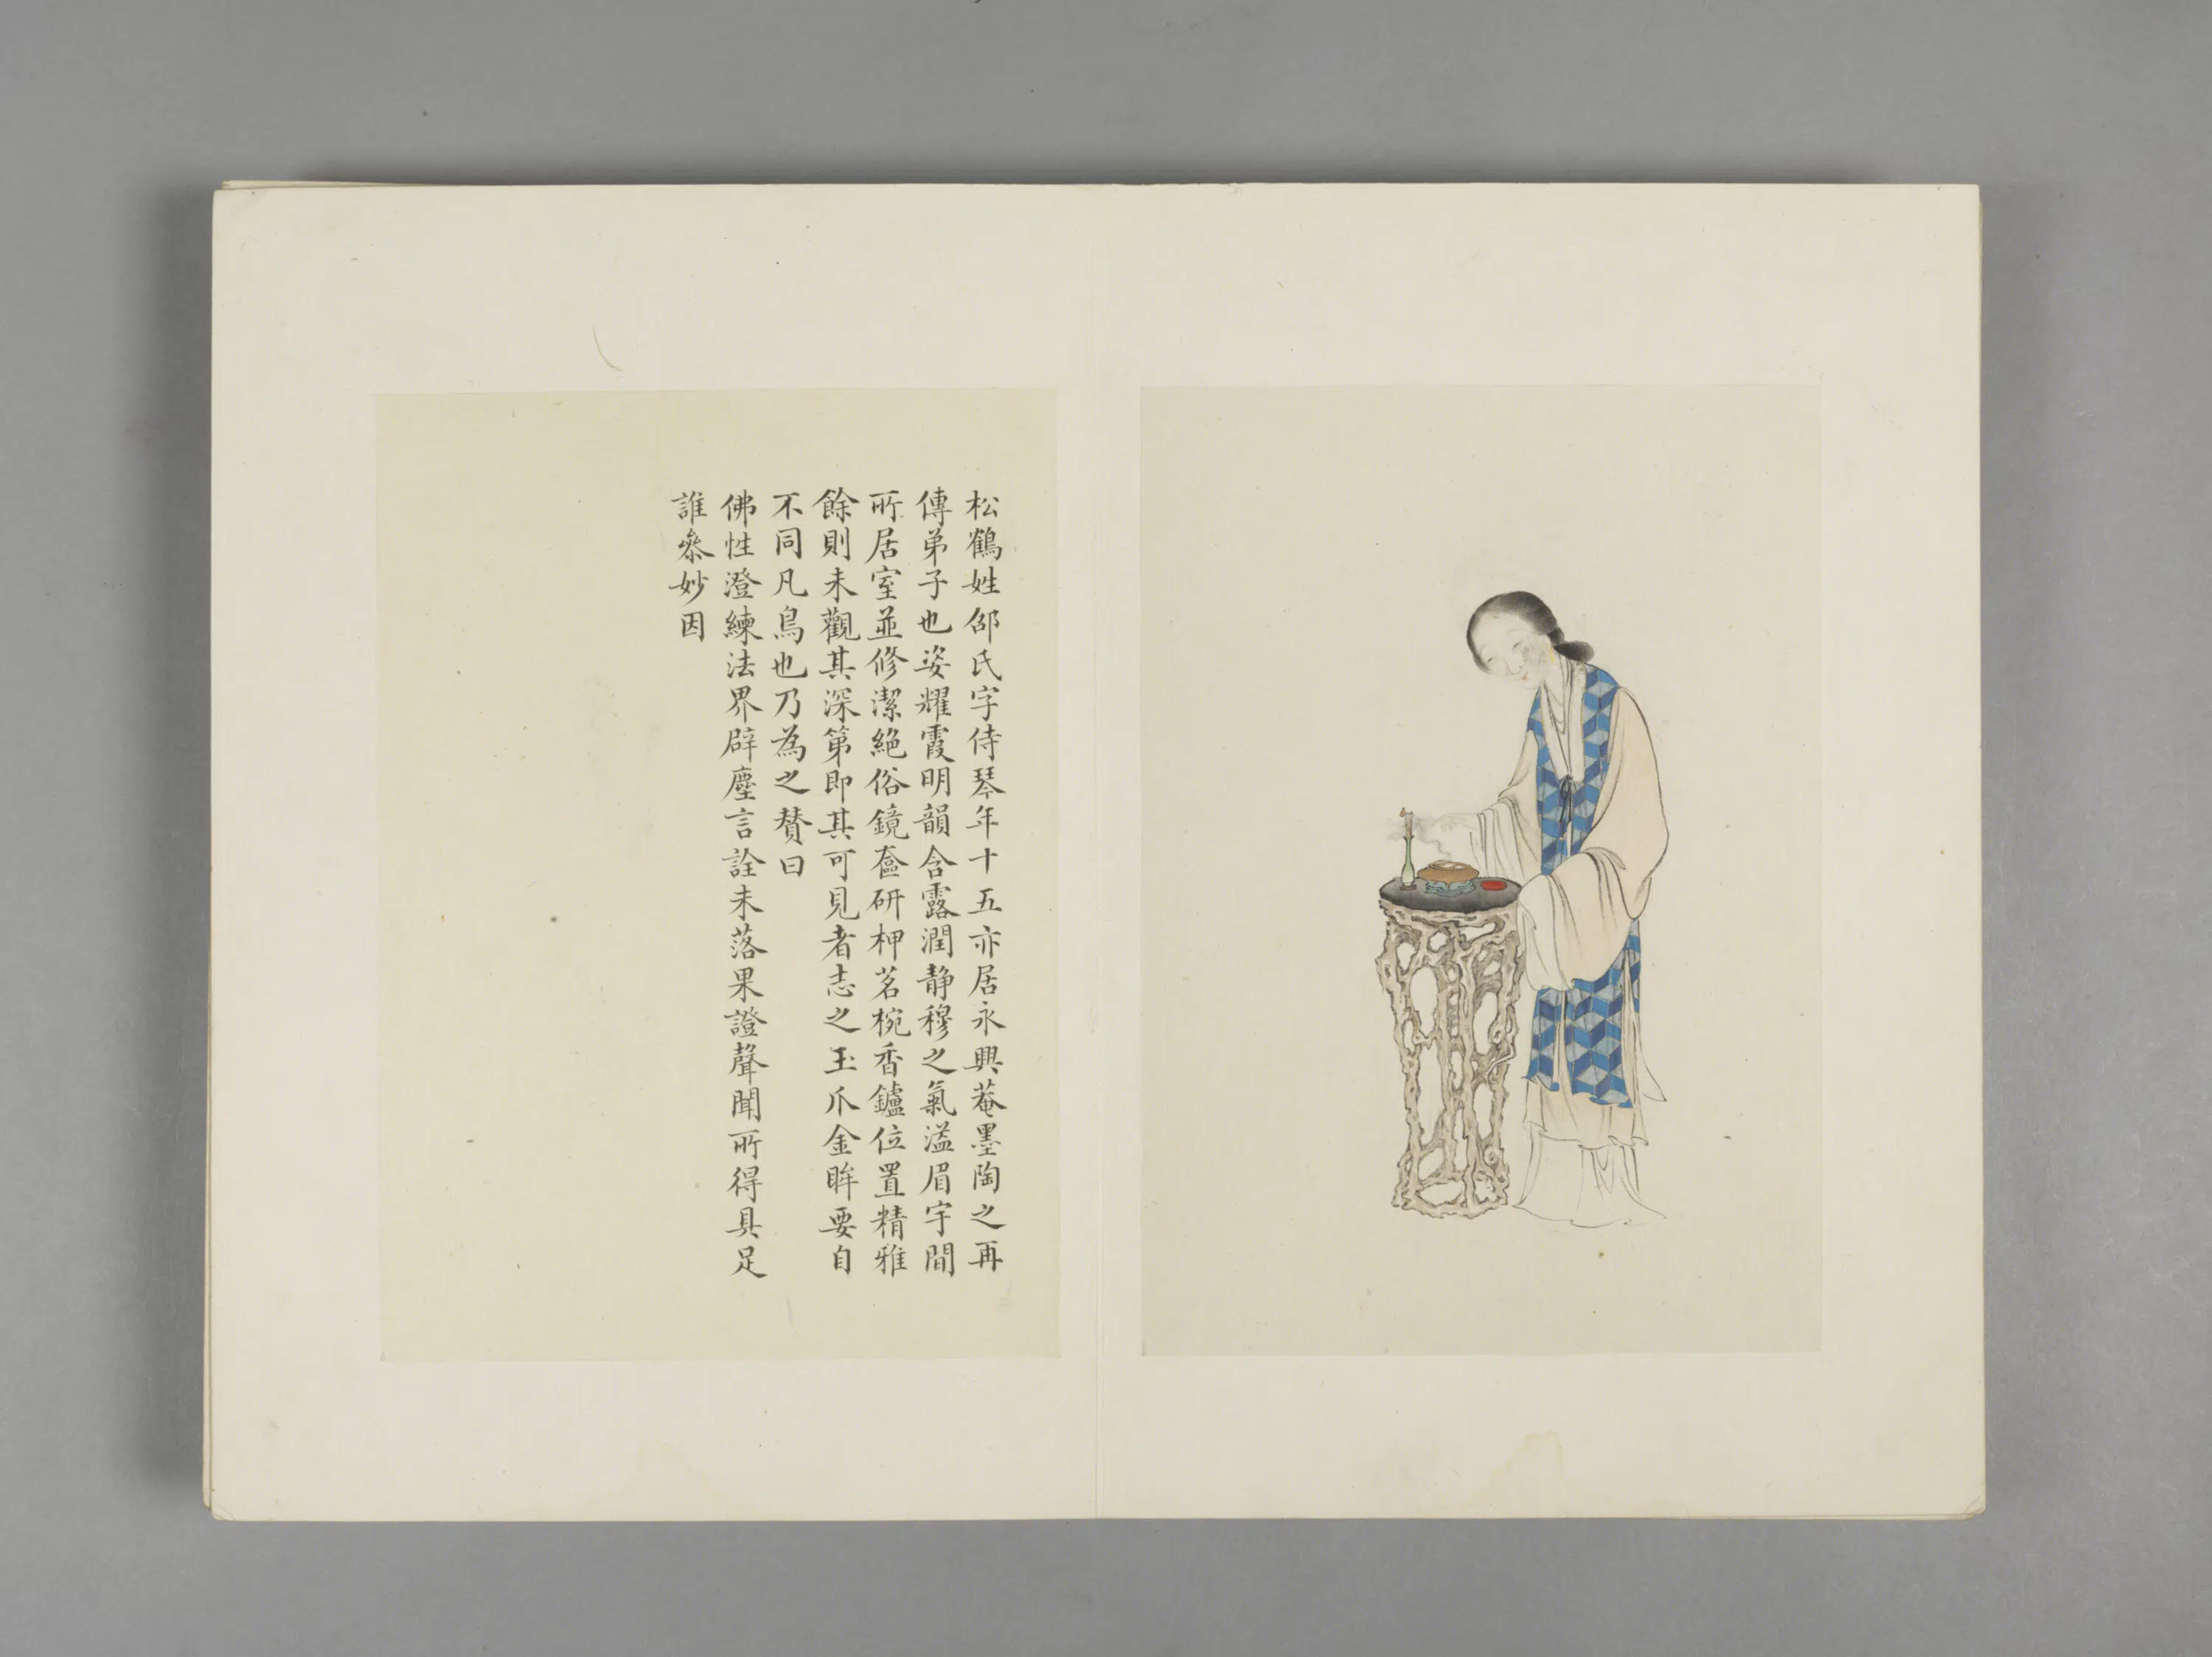 松鶴姓邵氏字侍琴年十五亦居永興菴墨陶之再
傳弟子也姿耀霞明韻含露潤静穆之氣溢眉宇間
所居室並修潔絶俗鏡奩研柙茗椀香鑪位置精雅
餘則未觀其深第即其可見者志之玉爪金眸要自
不同凡鳥也乃為之贊曰
佛性澄練法界辟塵言詮未落果證聲聞所得具足
誰叅妙因